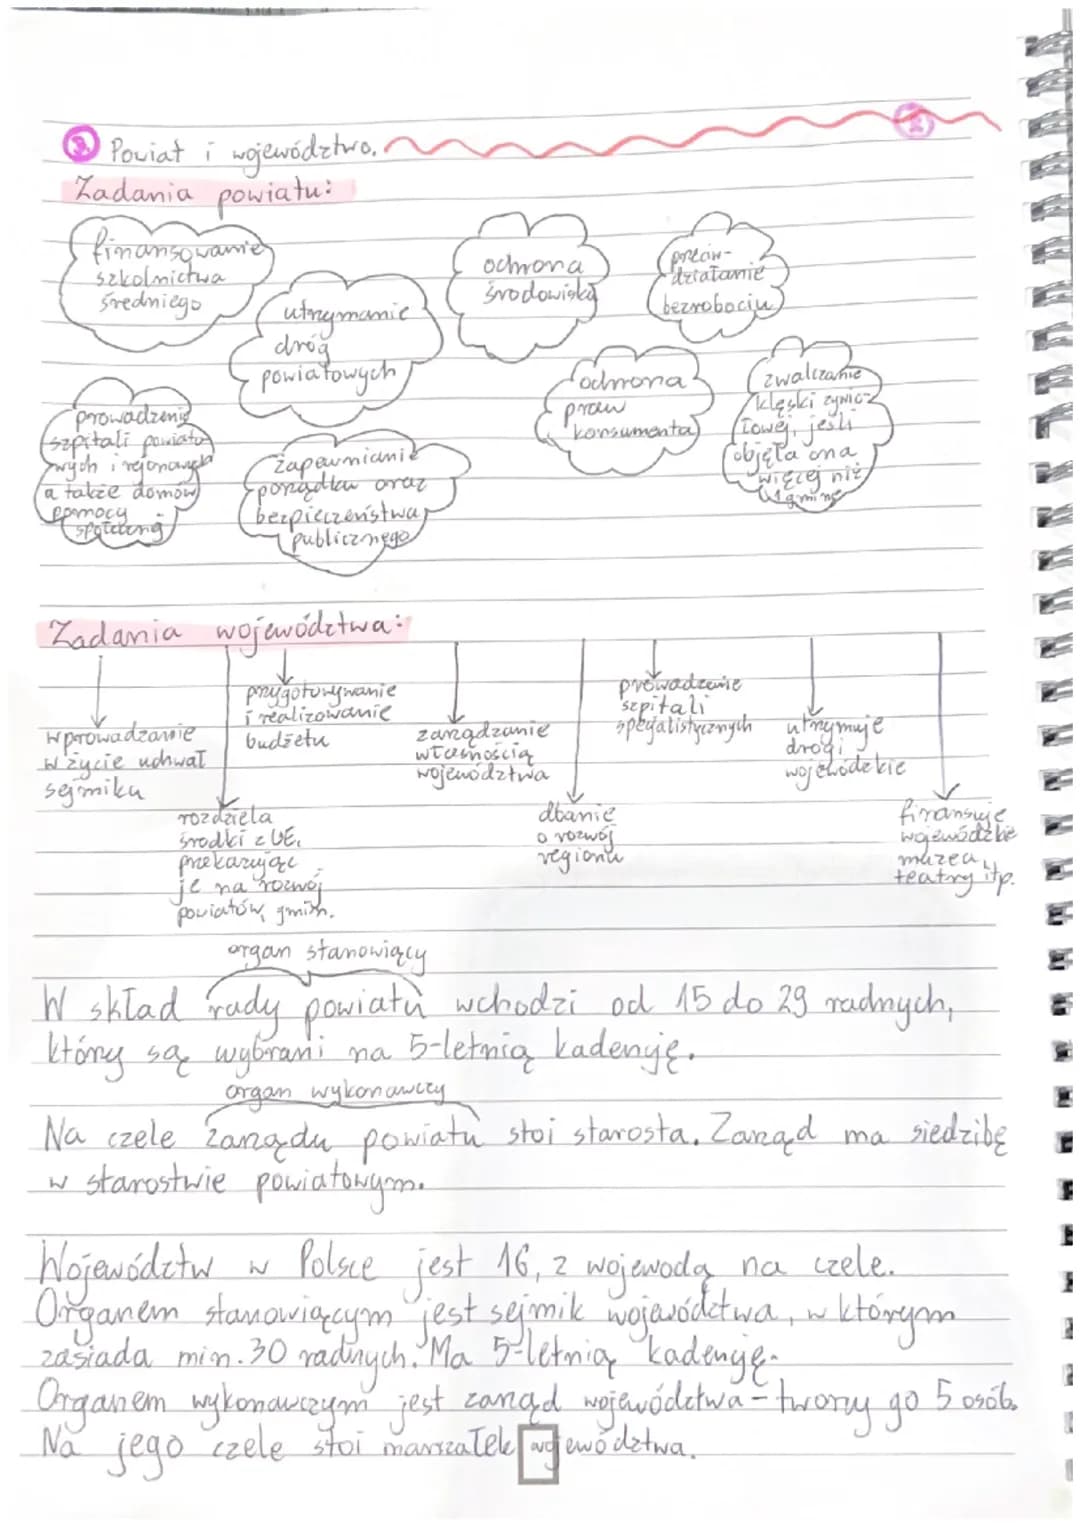 3 Powiat i województwo.
Zadania powiatu:
finansowanie
szkolnictwa
średniego
utrzymanie
dróg
powiatowych
ochrona
środowiska
przeciw-
działanie
bezrobociu
prowadzenie
szpitali powiato-
wych i rejonowych
a także domów
pomocy
społecznej
zapewnianie
porządku oraz
bezpieczeństwa
publicznego
ochrona
praw
konsumenta
zwalczanie
klęski żywio-
łowej, jeśli
objęła ona
więcej niż
1 gminę
Zadania województwa:
wprowadzanie
w życie uchwał
sejmiku
rozdziela
środki z UE,
przekazując
je na rozwój
powiatów, gmin.
przygotowywanie
i realizowanie
budżetu
zarządzanie
własnością
województwa
dbanie
o rozwój
regionu
prowadzenie
szpitali
specjalistycznych
utrzymuje
drogi
wojewódzkie
finansuje
wojewódzkie
muzea,
teatry itp.
organ stanowiący
W skład rady powiatu wchodzi od 15 do 29 radnych,
którzy są wybrani na 5-letnią kadencję.
organ wykonawczy
Na czele zarządu powiatu stoi starosta. Zarząd ma siedzibę
w starostwie powiatowym.
Województw w Polsce jest 16, z wojewodą na czele.
Organem stanowiącym jest sejmik województwa, w którym
zasiada min. 30 radnych. Ma 5-letnią kadencję.
Organem wykonawczym jest zarząd województwa - tworzy go 5 osób.
Na jego czele stoi marszałek województwa.